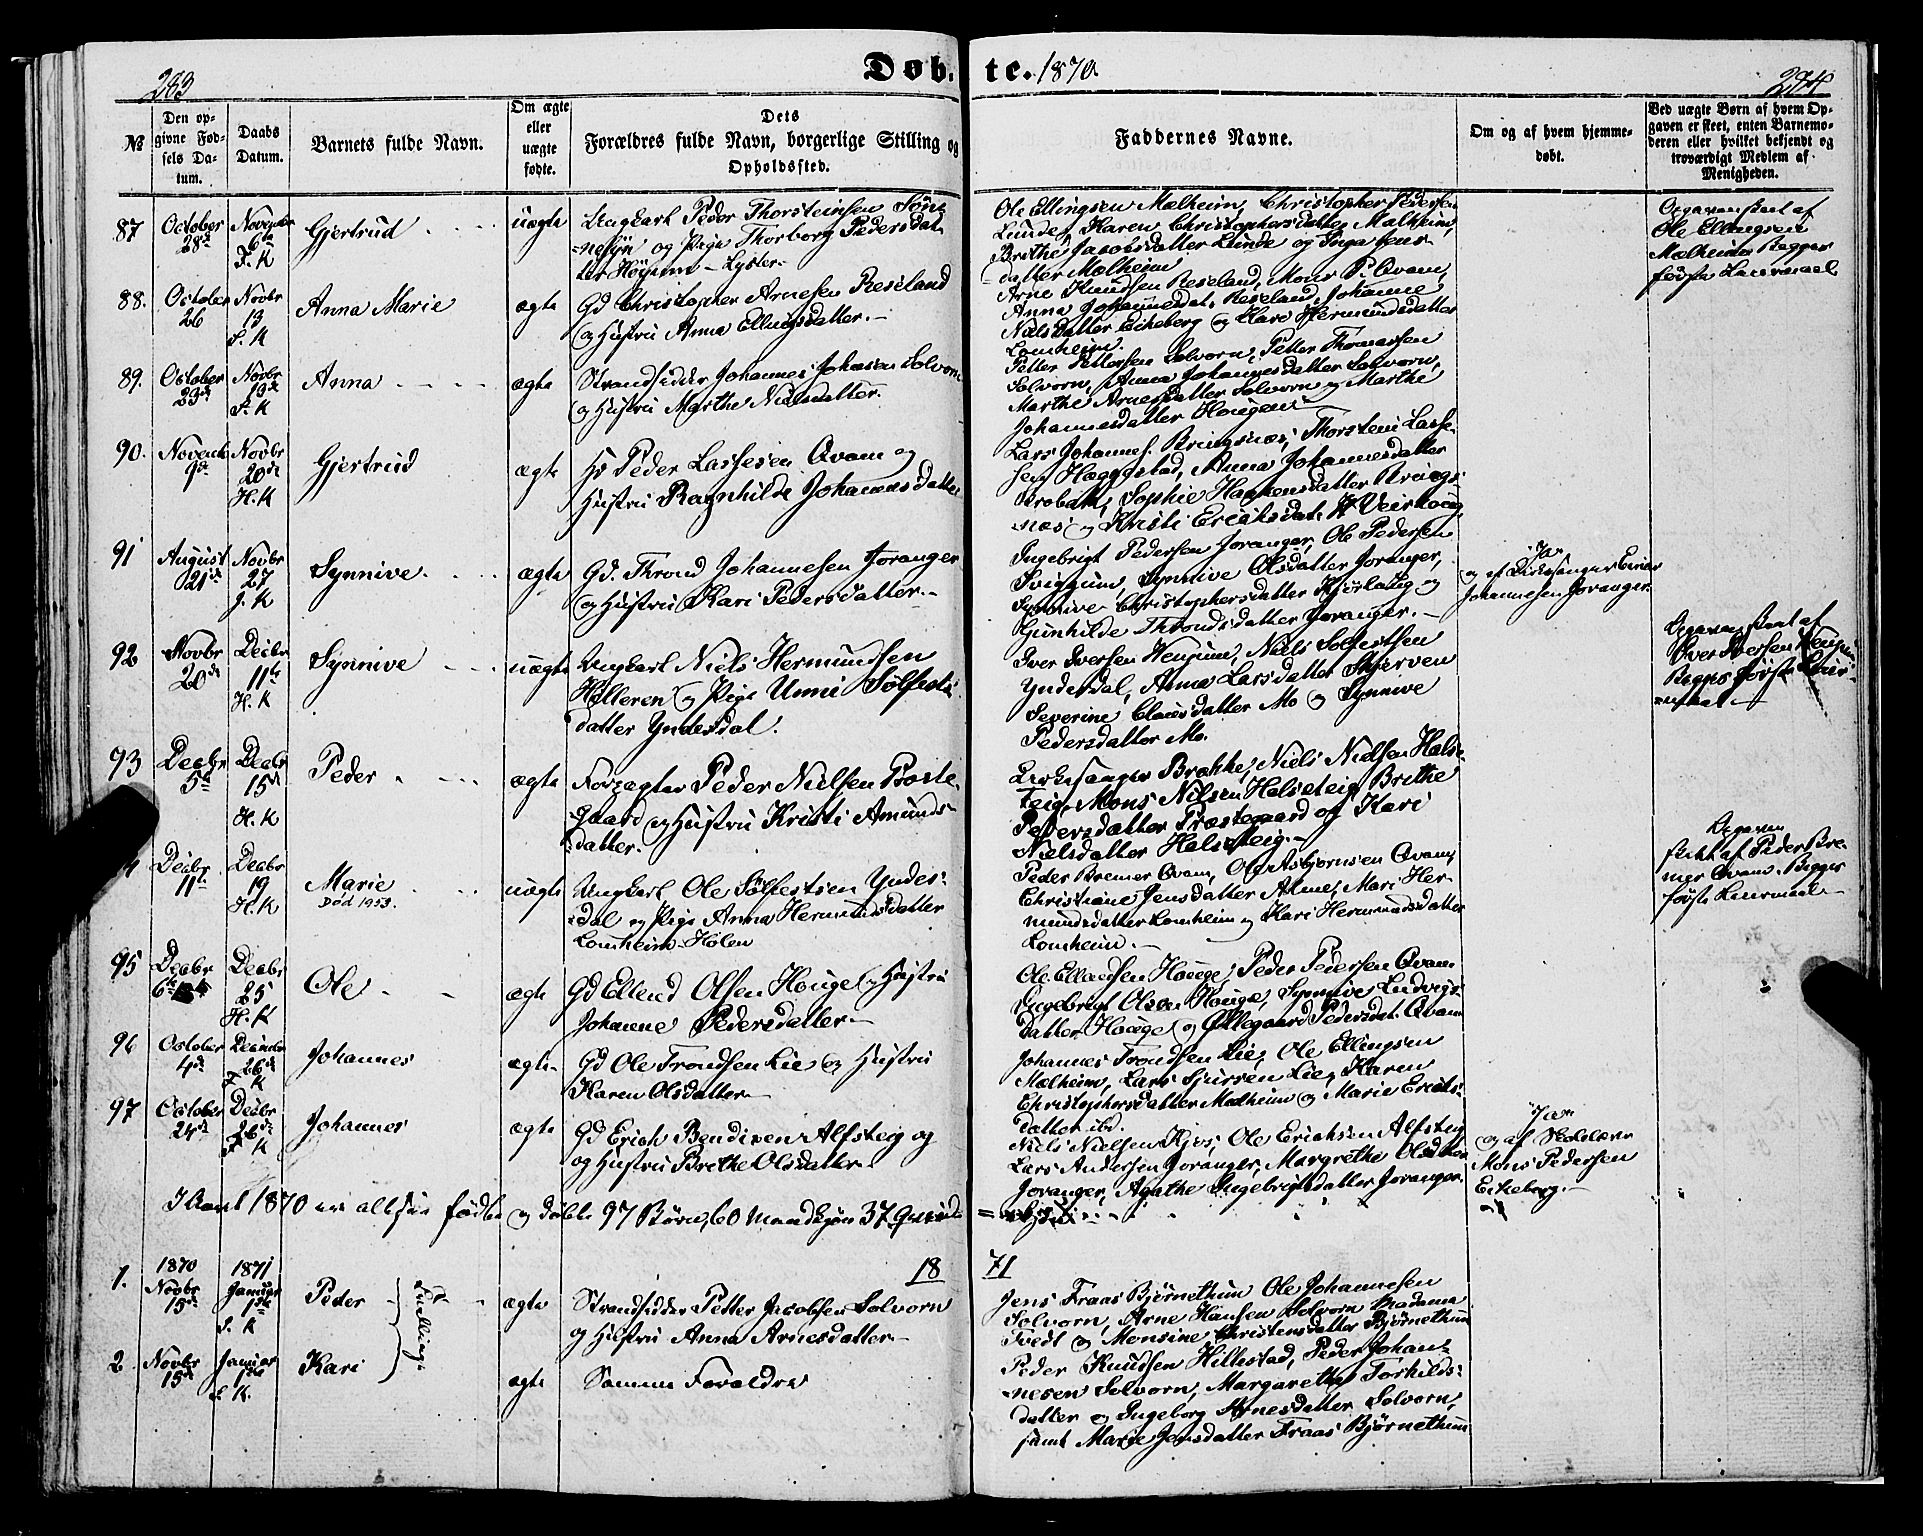 283
Døb-te. 1870
284
№
Den opgivne Fødsels Datum.
Daabs Datum.
Barnets fulde Navn.
Om ægte eller uægte fødte.
Dets Forældres fulde Navn, borgerlige Stilling og Opholdssted.
Faddernes Navne.
Om og af hvem hjemmedøbt.
Ved uægte Børn af hvem Opgaven er skeet, enten Barnemoderen eller hvilket bekjendt og troværdigt Medlem af Menigheden.
87 October 28de Novembr 6te J. K Gjertrud uægte
Ungkarl Peder Thorsteinsen
og Pige Thorborg Pedersdat-
ter Høyum - Lyster
Ole Ellingsen Mælheim, Christopher Pedersen
Lunde, Karen Christophersdatter Mælheim,
Brithe Jacobsdatter Lunde og Inga Jens-
datter Mælheim
Opgaven skeet af
Ole Ellingsen
Mælheim Begges
første Leiermaal
88. October 26 Novbr 13 S. K Anna Marie ægte
Gd Christopher Arnesen Reseland
og Hustru Anna Ellingsdatter.
Arne Knudsen Reseland, Mons P. Qvam,
Anna Johannesdat. Reseland, Johanne
Nielsdatter Eikeberg og Kari Hermundsdatter
Lomheim.
89. October 23de Novbr 13de S. K Anna ægte
Strandsidder Johannes Johnsen Solvorn
og Hustru Marthe Nielsdatter.
Petter Pettersen Solvorn, Petter Thomassen
Solvorn, Anna Johannesdatter Solvorn,
Marthe Arnesdatter Solvorn og Marthe
Johannesdatter Hougen
90. Novemb 9de Novbr 20de H. K Gjertrud ægte
Hs Peder Lassesen Qvam og
Hustru Ragnhilde Johannesdatter
Lars Johannes. Bringsnæs, Thorstein Lasse-
sen Hæggestad, Anna Johannesdatter
Sophie Haakensdatter Brings-
næs og Kristi Ericksdat.
91 August 21de Novbr 27 J. K Synnive ægte
Gd. Thrond Johannesen Joranger
og Hustru Kari Pedersdatter.
Ingebrigt Pedersen Joranger, Ole Pedersen
Sviggum, Synnive Olsdatter Joranger,
Synnive Christophersdatter og
Gunhilde Throndsdatter Joranger.
Ja
og af Kirkesanger
Johannesen Joranger
92 Novbr 20de Decbr 11te H. K Synnive uægte
Ungkarl Niels Hermundsen
Hilleren og Pige Unni Sølfests-
datter Yndesdal.
Iver Iversen Heugum, Niels Solfestsen
Yndesdal, Anna Larsdatter Skjerven
Severine Clausdatter Mo og Synnive
Pedersdatter Mo.
Opgaven skeet af
Iver Iversen Heugum
Begges første Leier-
maal
93 Decbr 5te Decbr 15de H. K Peder ægte
Forpagter Peder Nielsen Præste-
gaard og Hustru Kristi Amunds-
datter.
Kirkesanger Brække, Niels Nielsen Halse-
teig, Mons Nilsen Halseteig, Brithe
Pedersdatter Præstegaard og Kari
Nielsdatter Halseteig
4 Decbr 11te Decbr 19 H. K Marie uægte
Død 1953.
Ungkarl Ole Sølfestsen Yndes-
dal og Pige Anna Hermundsdatter
Lomheim-Hølen
Peder Bremer Qvam, Ole Asbjørnsen Qvam,
Christiane Jensdatter Alme, Mari Her-
mundsdatter Lomheim og Kari Hermundsdatter
Lomheim.
Opgaven
skeet af Peder Bre-
mer Qvam. Begges
første Leiermaal
95 Decbr 6te Decbr 25 H. K Ole ægte
Gd Ellend Olsen Houge og Hustru
Johanne Pedersdatter
Ole Ellendsen Houge, Peder Pedersen Qvam
Ingebrigt Olsen Houge, Synnive Ludvigs-
datter Houge og Øllegaard Pedersdat. Qvam
96 October 4de Decembr 26de J. K Johannes ægte
Gd Ole Trondsen Lie og Hustru
Karen Olsdatter
Johannes Trondsen Lie, Ole Ellingsen
Mælheim, Lars Sjursen Lie, Karen
Christophersdatter Mælheim og Marie Erichs-
datter ibd.
97 October 24de Decbr 26de J. K Johannes ægte
Gd Erich Bendixen Alfsteig og
og Hustru Brithe Olsdatter
Niels Nielsen Kjos, Ole Erichsen Alfsteig
Lars Andersen Joranger, Margrethe Olsdatter
Joranger, Agathe Ingebrigtsdatter Joranger.
Ja
og af Skolelærer
Mons Pedersen
Eikeberg.
I Aaret 1870 er altsaa fødte og døbte 97 Børn, 60 Mandkjøn 37 Qvinde-
kjøn
18 71
1. 1870 Novbr 15de 1871 Januar 1ste S. K Peder Tvillinger ægte
Strandsidder Petter Jacobsen Solvorn
og Hustru Anna Arnesdatter
Jens Fraas Bjørnethun Ole Johannesen
Solvorn, Arne Hansen Solvorn Madama
Tvedt og Monsine Christensdatter Bjørnethun
2 Novbr 15de Januar 1ste S. K. Kari ægte
Samme Forældre
Peder Knudsen Hillestad, Peder Johan-
nesen Solvorn, Margarethe Torkilds-
datter og Ingeborg Arnesdatter Solvorn,
samt Marie Jensdatter Fraas Bjørnethun